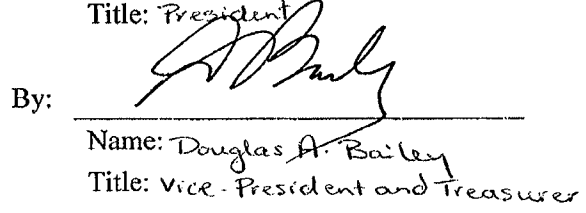 Title: President
By:
Name: Douglas A. Bailey
Title: Vice-President and Treasurer